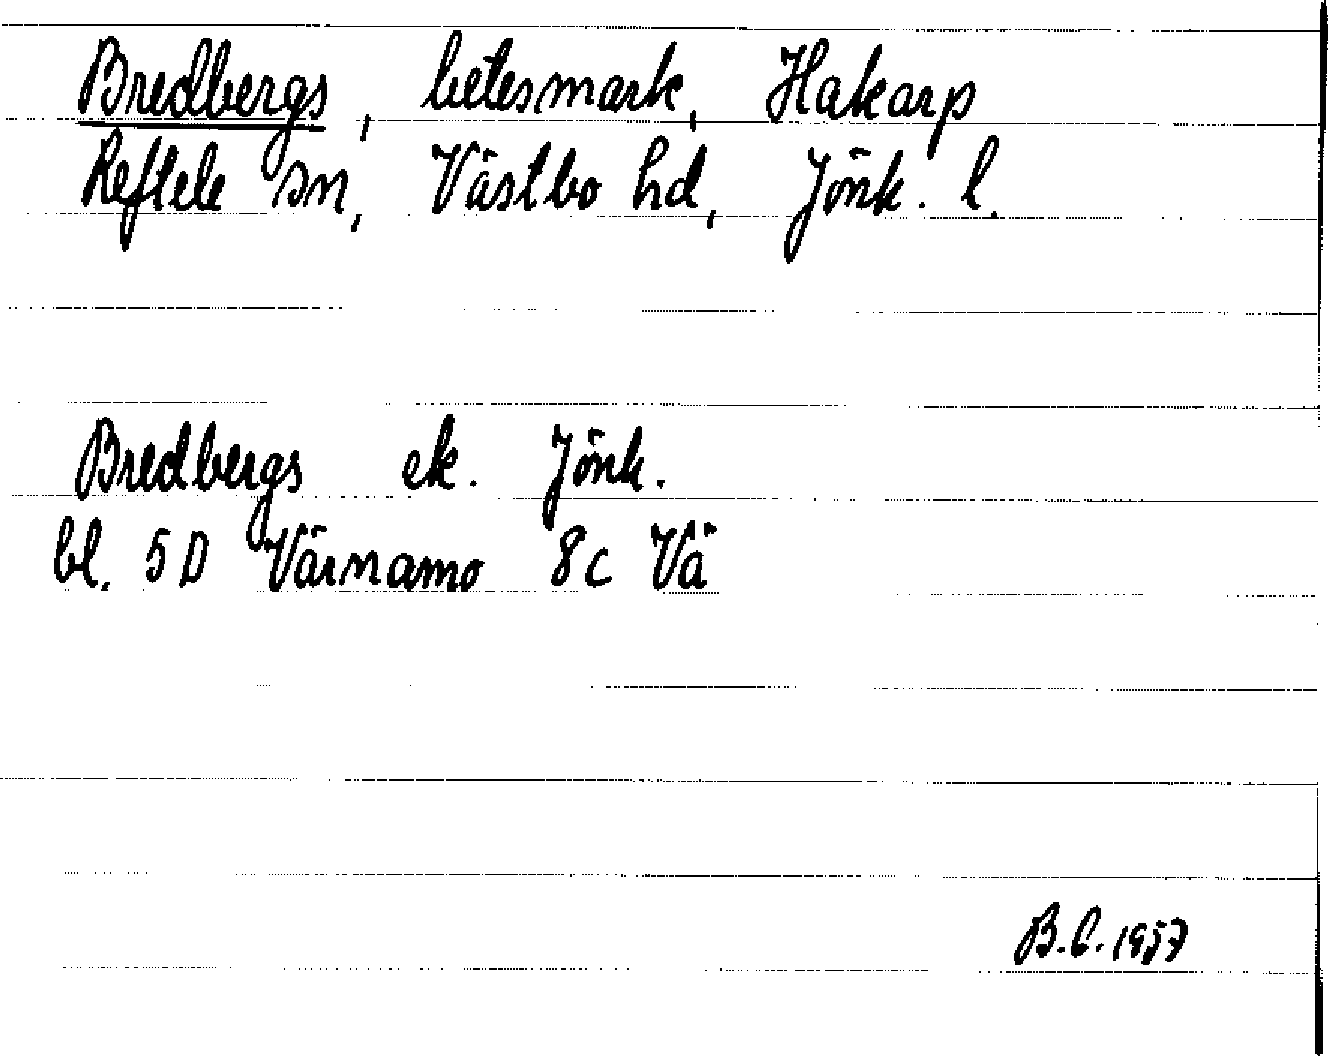 Bredbergs, betesmark, Hakarp
Reftele sn, Västbo hd, Jönk. l.
Bredbergs ek. Jönk.
bl. 5D Värnamo 8c Vä
B.C. 1957